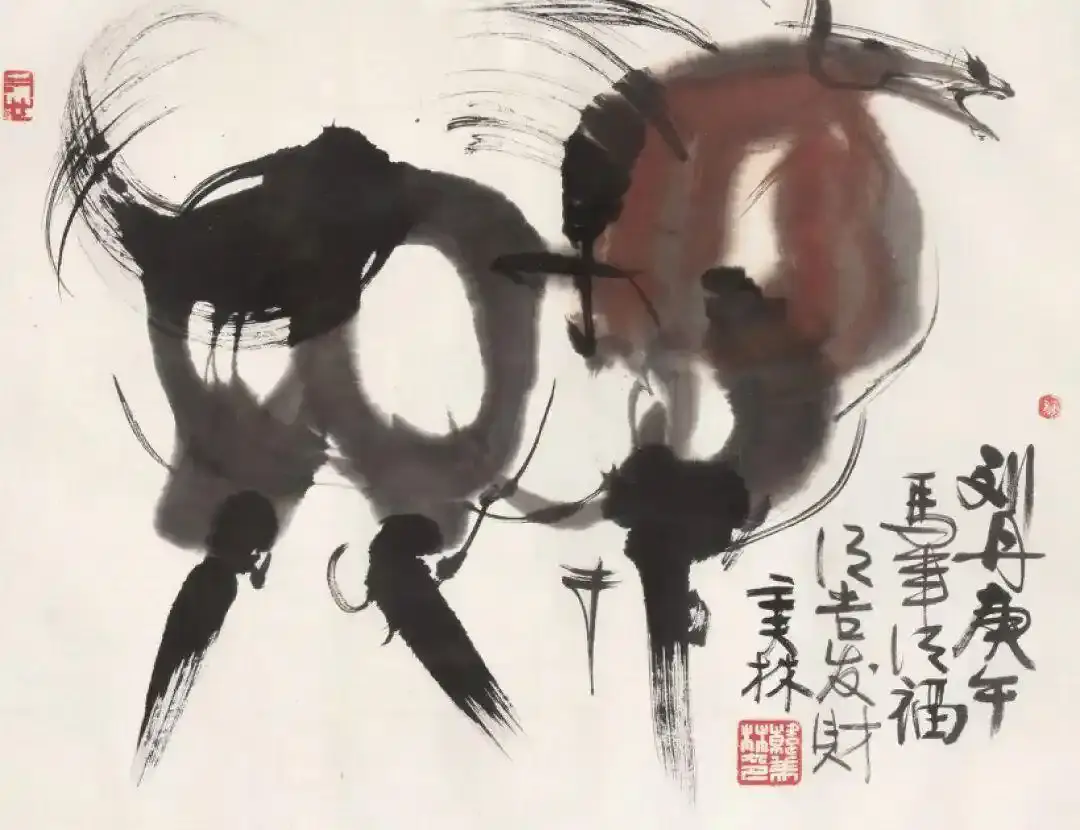 刘丹庚午
馬年得福
得吉发財
美林